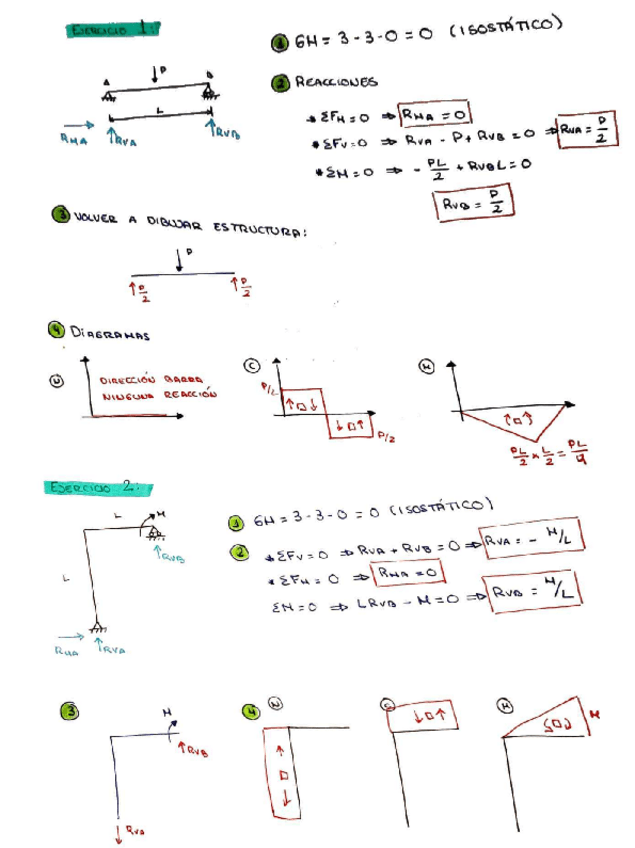 EJERCICIO 1:
① GH = 3 - 3 - 0 = 0 (ISOSTÁTICO)
② REACCIONES
* ΣFH = 0 ⇒ RHA = 0
* ΣFV = 0 ⇒ RVA - P + RVB = 0 ⇒ RVA = P/2
* ΣM = 0 ⇒ - PL/2 + RVB L = 0
RVB = P/2
A P B
L
RHA RVA RVB
③ VOLVER A DIBUJAR ESTRUCTURA:
P
P/2 P/2
④ DIAGRAMAS
N
DIRECCIÓN BARRA
NINGUNA REACCIÓN
C
P/2
P/2
M
PL/2 × L/2 = PL/4
EJERCICIO 2:
L M
RVB
L
RHA RVA
① GH = 3 - 3 - 0 = 0 (ISOSTÁTICO)
② * ΣFV = 0 ⇒ RVA + RVB = 0 ⇒ RVA = - M/L
* ΣFH = 0 ⇒ RHA = 0
ΣM = 0 ⇒ LRVB - M = 0 ⇒ RVB = M/L
③ M
RVB
RVA
④ N
C
M
M